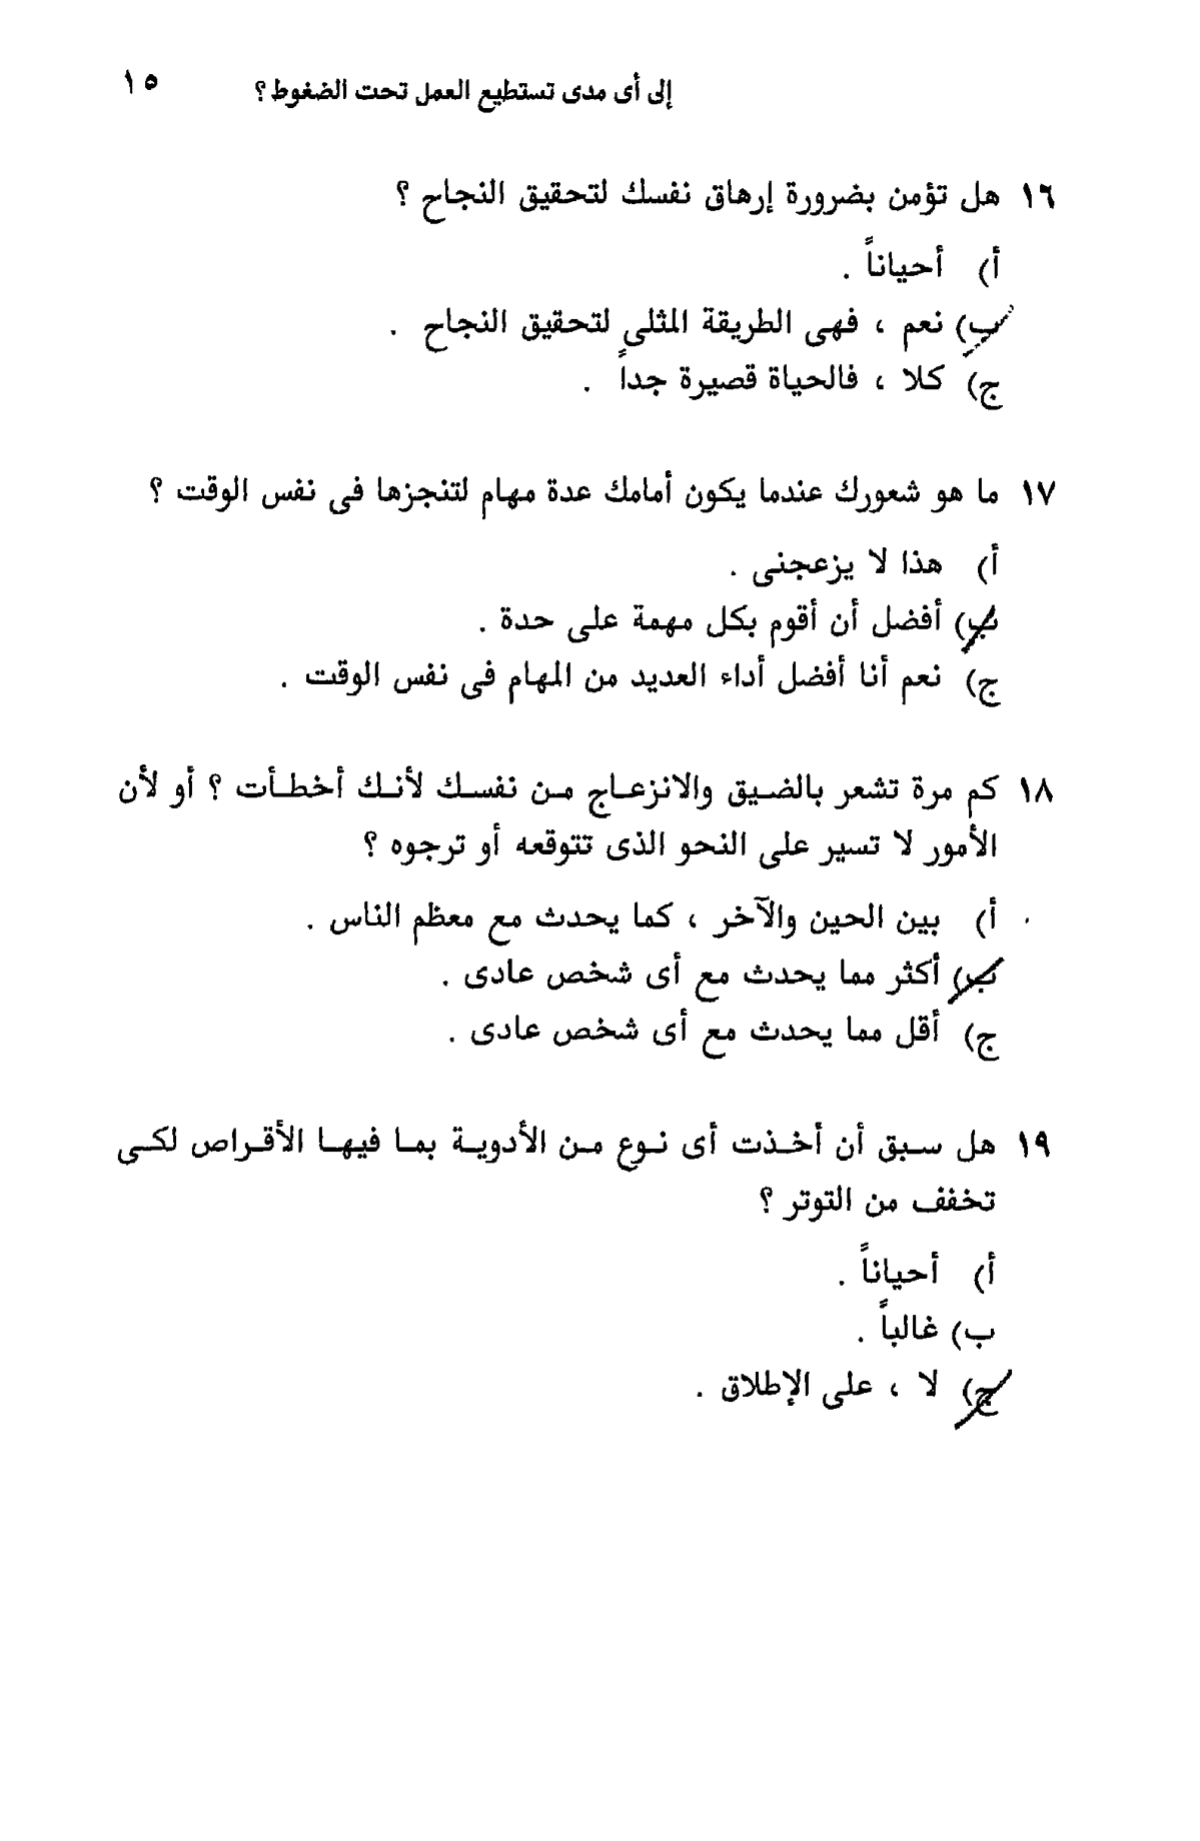 إلى أى مدى تستطيع العمل تحت الضغوط؟ ١٥
١٦ هل تؤمن بضرورة إرهاق نفسك لتحقيق النجاح ؟
أ) أحياناً .
ب) نعم ، فهى الطريقة المثلى لتحقيق النجاح .
ج) كلا ، فالحياة قصيرة جداً .
١٧ ما هو شعورك عندما يكون أمامك عدة مهام لتنجزها فى نفس الوقت ؟
أ) هذا لا يزعجنى .
ب) أفضل أن أقوم بكل مهمة على حدة .
ج) نعم أنا أفضل أداء العديد من المهام فى نفس الوقت .
١٨ كم مرة تشعر بالضيق والانزعاج من نفسك لأنك أخطأت ؟ أو لأن
الأمور لا تسير على النحو الذى تتوقعه أو ترجوه ؟
أ) بين الحين والآخر ، كما يحدث مع معظم الناس .
ب) أكثر مما يحدث مع أى شخص عادى .
ج) أقل مما يحدث مع أى شخص عادى .
١٩ هل سبق أن أخذت أى نوع من الأدوية بما فيها الأقراص لكى
تخفف من التوتر ؟
أ) أحياناً .
ب) غالباً .
ج) لا ، على الإطلاق .